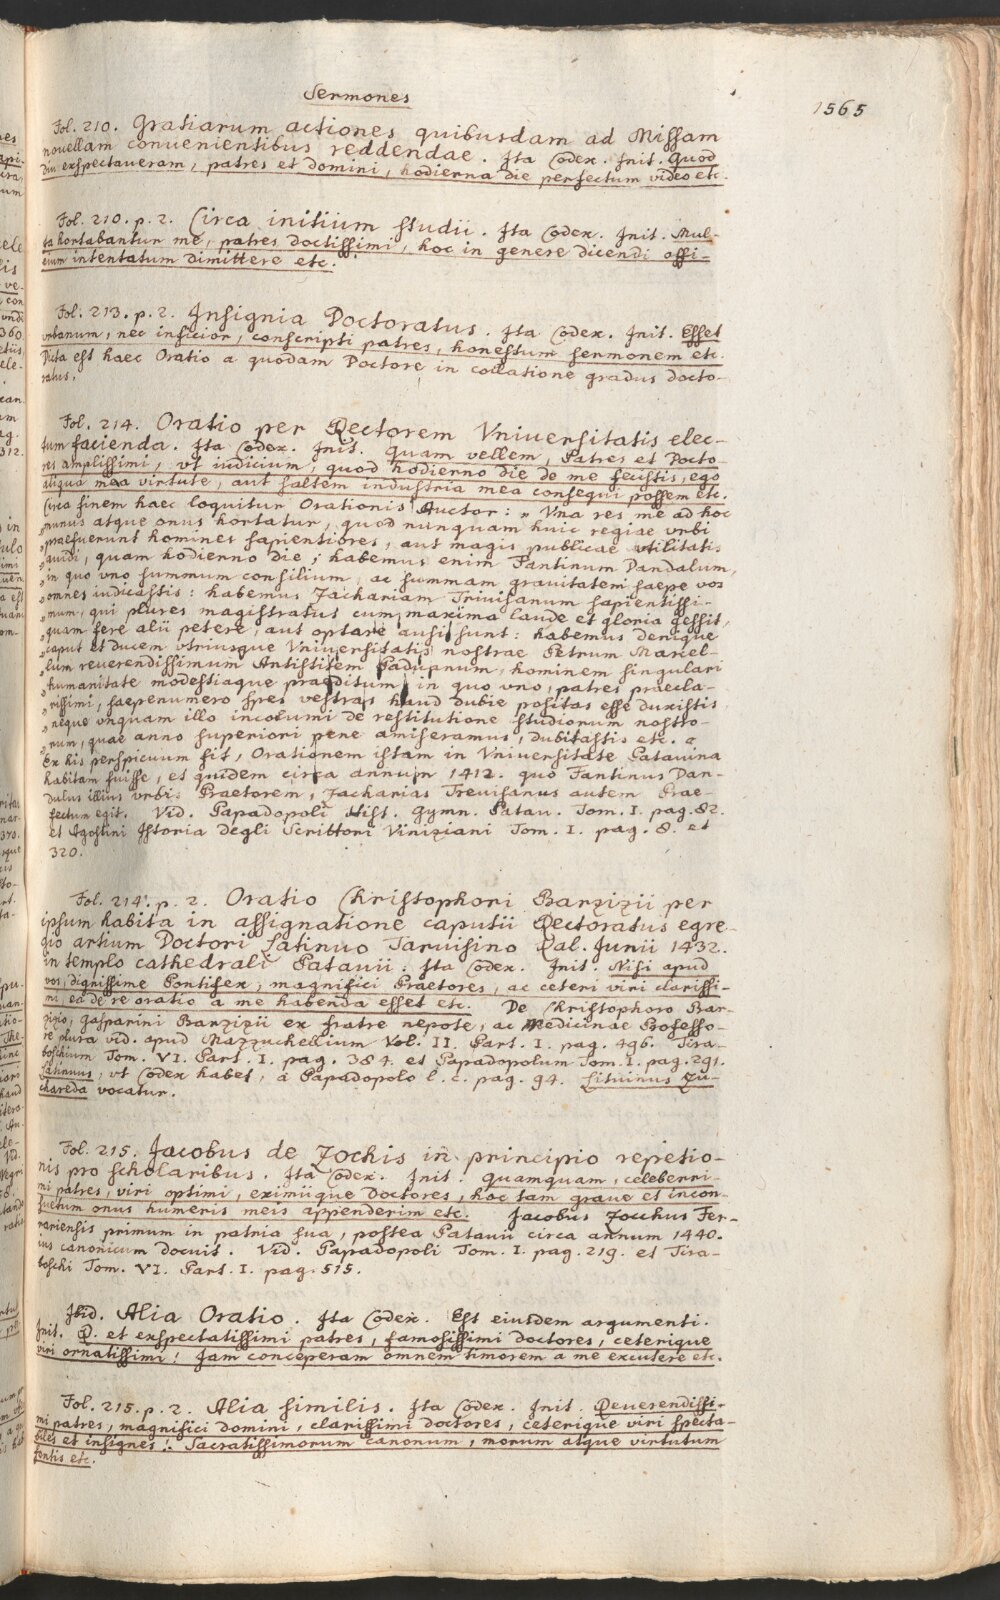 Sermones
1565
Fol. 210. Gratiarum actiones quibusdam ad Missam
nouellam conuenientibus reddendae. Ita Codex. Init. Quod
diu exspectaueram, patres et domini, hodierna die perfectum video etc.
Fol. 210. p. 2. Circa initium studii. Ita Codex. Init. Mul-
ta hortabantur me, patres doctissimi, hoc in genere dicendi offi-
cium intentatum dimittere etc.
Fol. 213. p. 2. Insignia Doctoratus. Ita Codex. Init. Esset
vrbanum, nec inficior, conscripti patres, honestum sermonem etc.
Dicta est haec Oratio a quodam Doctore in collatione gradus docto-
ratus.
Fol. 214. Oratio per Rectorem Vniuersitatis elec-
tum facienda. Ita Codex. Init. Quam vellem, Patres et Docto-
res amplissimi, vt iudicium, quod hodierno die de me fecistis, ego
aliqua mea virtute, aut saltem industria mea consequi possem etc.
Circa finem haec loquitur Orationis Auctor: „Vna res me ad hoc
„munus atque onus hortatur, quod nunquam huic regiae vrbi
„praefuerunt homines sapientiores, aut magis publicae vtilitatis
„auidi, quam hodierno die; habemus enim Fantinum Dandalum,
„in quo vno summum consilium, ac summam grauitatem saepe vos
„omnes iudicastis: habemus Zachariam Triuisanum sapientissi-
„mum, qui plures magistratus cum maxima laude et gloria gessit,
„quam fere alii petere, aut optare ausi sunt: habemus denique
„caput et ducem vtriusque Vniuersitatis nostrae Petrum Marcel-
„lum reuerendissimum Antistitem Paduanum, hominem singulari
„humanitate modestiaque praeditum, in quo vno, patres praecla-
„rissimi, saepenumero spes vestras haud dubie positas esse duxistis
„neque vnquam illo incolumi de restitutione studiorum nostro-
„rum, quae anno superiori pene amiseramus, dubitastis etc. "
Ex his perspicuum fit, Orationem istam in Vniuersitate Patauina
habitam fuisse, et quidem circa annum 1412. quo Fantinus Dan-
dulus illius vrbis Praetorem, Zacharias Treuisanus autem Prae-
fectum egit. Vid. Papadopoli Hist. Gymn. Patau. Tom. I. pag. 82.
et Agostini Istoria degli Scrittori Viniziani Tom. I. pag. 8. et
320.
Fol. 214. p. 2. Oratio Christophori Barzizii per
ipsum habita in assignatione caputii Rectoratus egre-
gio artium Doctori Latinuo Taruisino Kal. Junii 1432.
in templo cathedrali Patauii: Ita Codex. Init. Nisi apud
vos, dignissime Pontifex, magnifici Praetores, ac ceteri viri clarissi-
mi ea de re oratio a me habenda esset etc. De Christophoro Bar-
zizio, Gasparini Barzizii ex fratre nepote, ac Medicinae Professo-
re plura vid. apud Mazzuchellium Vol. II. Part. I. pag. 496. Tira-
boschium Tom. VI. Part. I. pag. 384. et Papadopolum Tom. I. pag. 291.
Latinuus, vt Codex habet, a Papadopolo l. c. pag. 94. Lituinus Zu-
chareda vocatur.
Fol. 215. Jacobus de Zochis in principio repetio-
nis pro scholaribus. Ita Codex. Init. Quamquam, celeberri-
mi patres, viri optimi, eximiique doctores, hoc tam graue et incon-
suetum onus humeris meis appenderim etc. Jacobus Zocchus Fer-
rariensis primum in patria sua, postea Patauii circa annum 1440.
ius canonicum docuit. Vid. Papadopoli Tom. I. pag. 219. et Tira-
boschi Tom. VI. Part. I. pag. 515.
Ibid. Alia Oratio. Ita Codex. Est eiusdem argumenti.
Init. R. et exspectatissimi patres, famosissimi doctores, ceterique
viri ornatissimi! Jam conceperam omnem timorem a me excutere etc.
Fol. 215. p. 2. Alia similis. Ita Codex. Init. Reuerendissi-
mi patres, magnifici domini, clarissimi doctores, ceterique viri specta-
biles et insignes! Sacratissimorum canonum, morum atque virtutum
fontis etc.